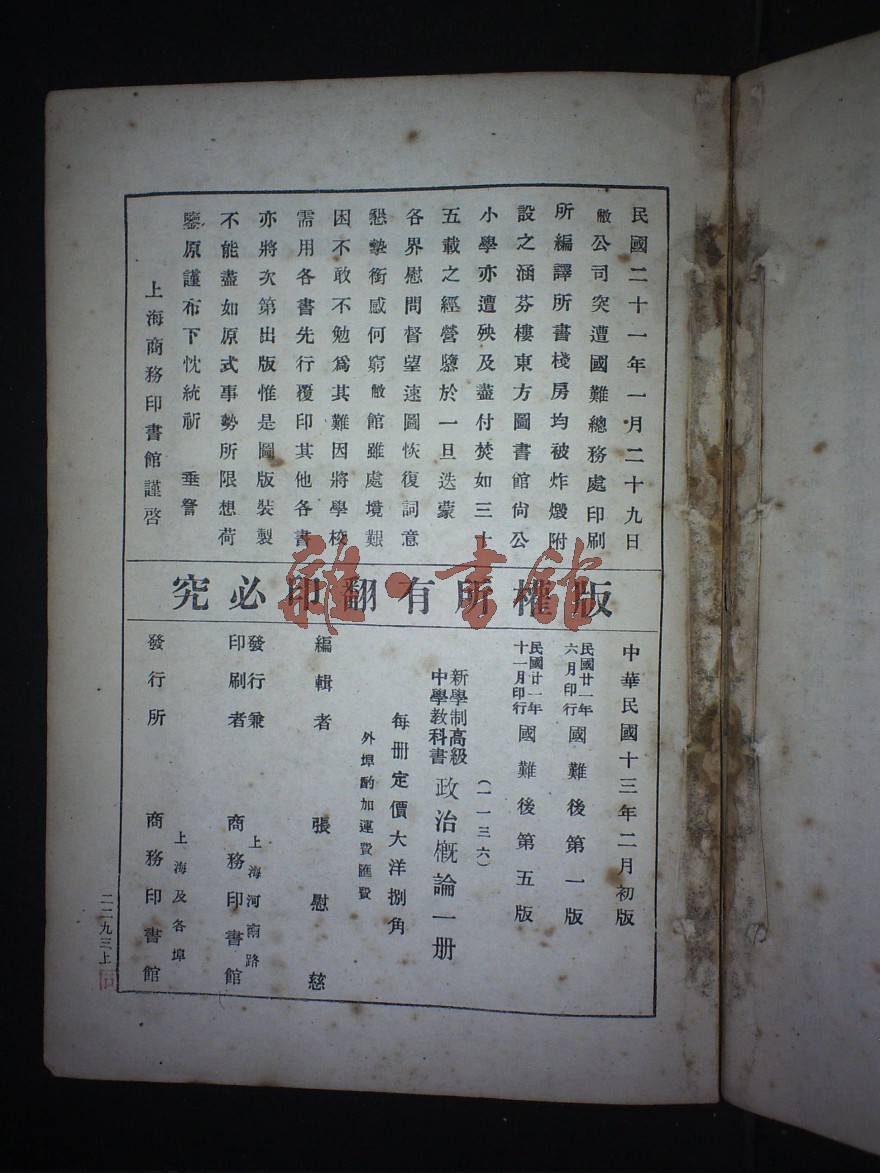 民國二十一年一月二十九日
敝公司突遭國難總務處印刷
所編譯所書棧房均被炸燬附
設之涵芬樓東方圖書館尚公
小學亦遭殃及盡付焚如三十
五載之經營隳於一旦迭蒙
各界慰問督望速圖恢復詞意
懇摯銜感何窮敝館雖處境艱
困不敢不勉爲其難因將學校
需用各書先行覆印其他各書
亦將次第出版惟是圖版裝製
不能盡如原式事勢所限想荷
鑒原謹布下忱統祈 垂詧
上海商務印書館謹啓
究必印翻有所權版
雜·書館
中華民國十三年二月初版
民國廿一年六月印行 國難後第一版
民國廿一年十一月印行 國難後第五版
(一一三六)
新學制高級中學教科書 政治槪論一册
每册定價大洋捌角
外埠酌加運費匯費
編輯者 張慰慈
發行兼印刷者 上海河南路 商務印書館
發行所 上海及各埠 商務印書館
二二九三上
同